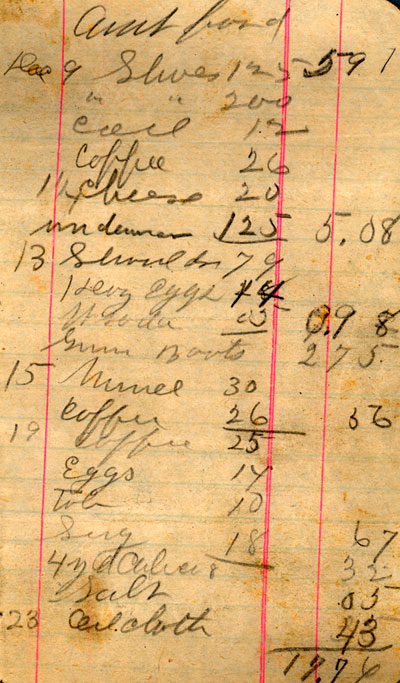 Amt ford
Dec 9 Shoes 125 591
" " 200
Coil 12
Coffee 26
14 Cheese 20
underwear 125 5.08
13 Shoulder 79
1 doz eggs 14
05 0.98
Gum Boots 275
15 30
Coffee 26 56
19 Coffee 25
Eggs 14
Tob 10
Sug 18 67
4 yd Calico 32
Salt .05
23 Oilcloth 43
17.76